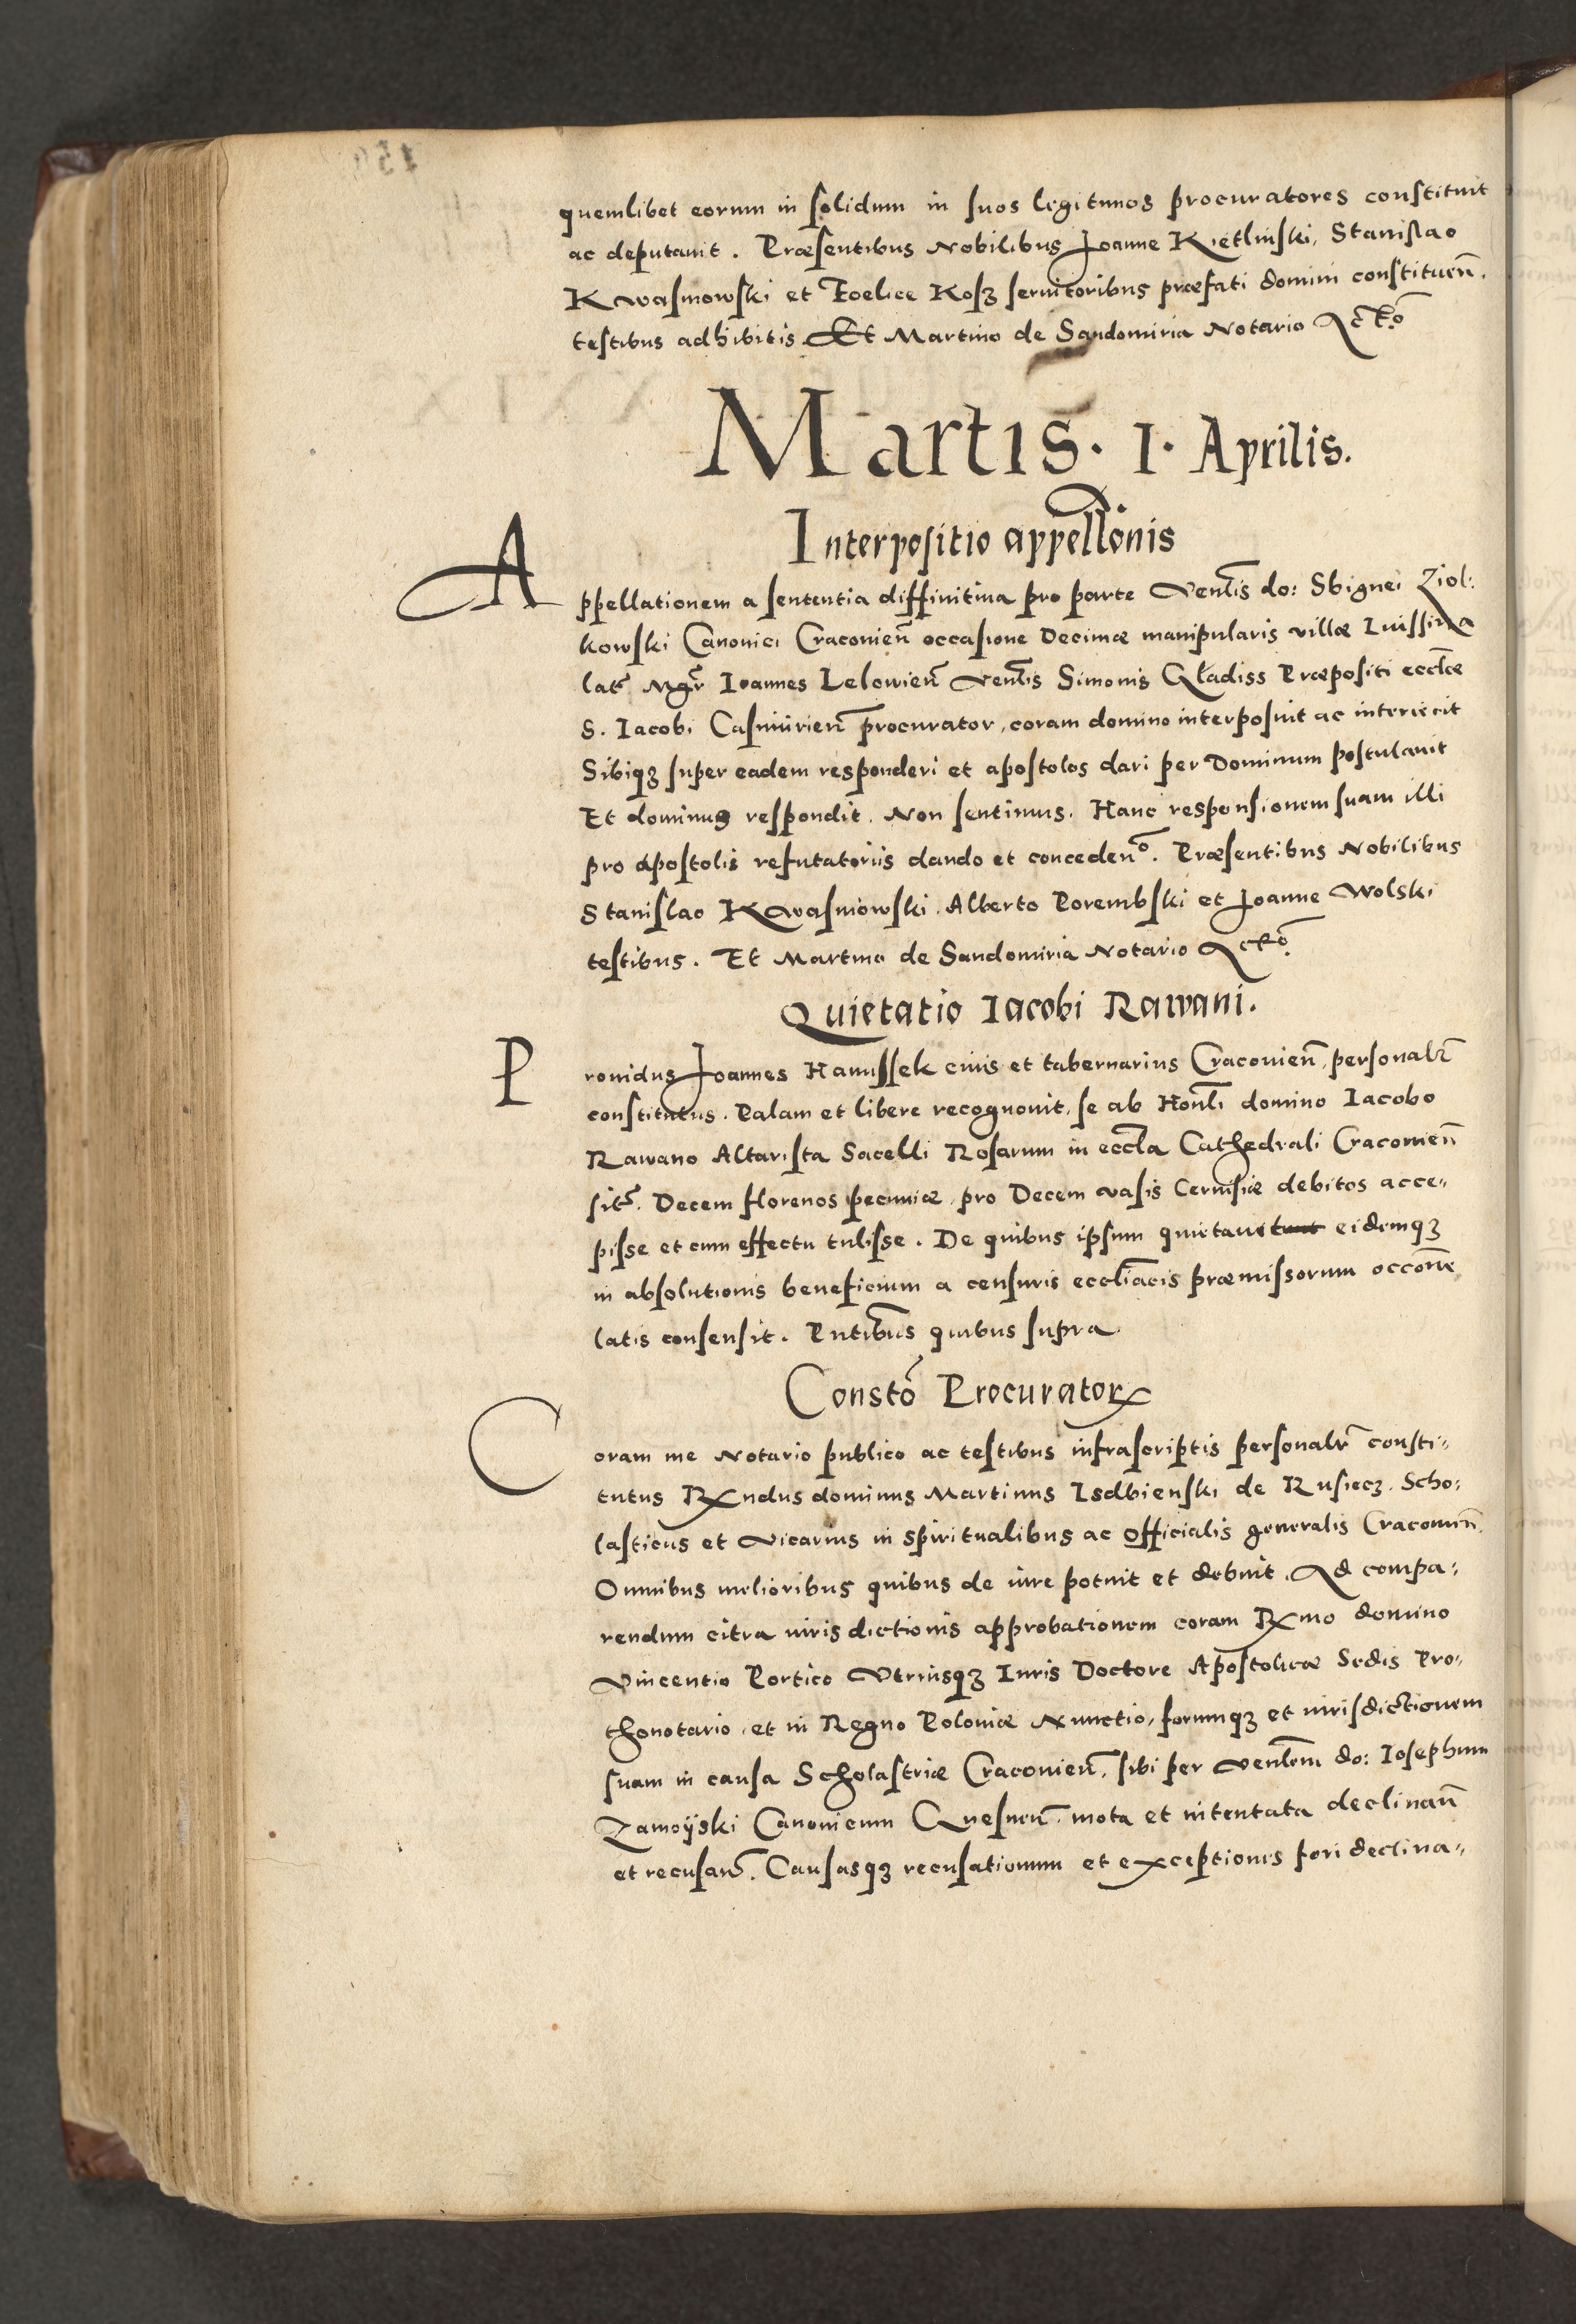 quemlibet eorum in solidum in suos legitimos procuratores constituit
ac deputauit. Præsentibus Nobilibus Joanne Kietlinski, Stanislao
Kwasniowski et Foelice Kosz seruitoribus præfati domini constituen̄.
testibus adhibitis Et Martino de Sandomiria Notario Actō.
Martis. 1. Aprilis.
Interpositio appellōnis
Appellationem a sententia diffinitiua pro parte Venlīs do: Sbignei Ziol:
kowski Canonici Cracouien̄ occasione Decimæ manipularis villæ
lat̃ Mgr̃ Ioannes Lelouien̄ Venlīs Simonis Gładiss Præpositi ecclīæ
S. Iacobi Casimirien̄ procurator, coram domino interposuit ac interiecit
Sibiqȝ super eadem responderi et apostolos dari per Dominum postulauit
Et dominus respondit. Non sentimus. Hanc responsionem suam illi
pro apostolis refutatoriis dando et concedenō. Præsentibus Nobilibus
Stanislao Kwasniowski. Alberto Porembski et Joanne Wolski
testibus. Et Martino de Sandomiria Notario Actō.
Quietatio Iacobi Rawani.
Prouidus Joannes Hanussek ciuis et tabernarius Cracouien̄, personalr̃
constitutus. Palam et libere recognouit, se ab Honlī domino Iacobo
Rawano Altarista Sacelli Rosarum in ecclā Cathedrali Cracouien̄
sit̃. Decem florenos pecuniæ pro Decem vasis Ceruisiæ debitos acce„
pisse et cum effectu tulisse. De quibus ipsum quietauit eidemqȝ
in absolutionis beneficium a censuris eccliācis præmissorum occōne
latis consensit. Pntibūs quibus supra.
Constō Procuratorꝝ
Coram me Notario publico ac testibus infrascriptis personalr̃ consti„
tutus Rndus dominus Martinus Isdbienski de Rusiecz. Scho:
lasticus et Vicarius in spiritualibus ac Officialis generalis Cracouien̄.
Omnibus melioribus quibus de iure potuit et debuit. Ad compa„
rendum citra iurisdictionis approbationem coram Rmo domino
Vincentio Portico Vtriusqȝ Iuris Doctore Apostolicæ Sedis Pro„
thonotario, et in Regno Poloniæ Nunctio, forumqȝ et iurisdictionem
suam in causa Scholastriæ Cracouien̄, sibi per Venlem̄ do: Iosephum
Zamoÿski Canonicum Gnesnen̄ mota et intentata declinan̄
et recusan̄. Causasqȝ recusationum et exceptionis fori declina„